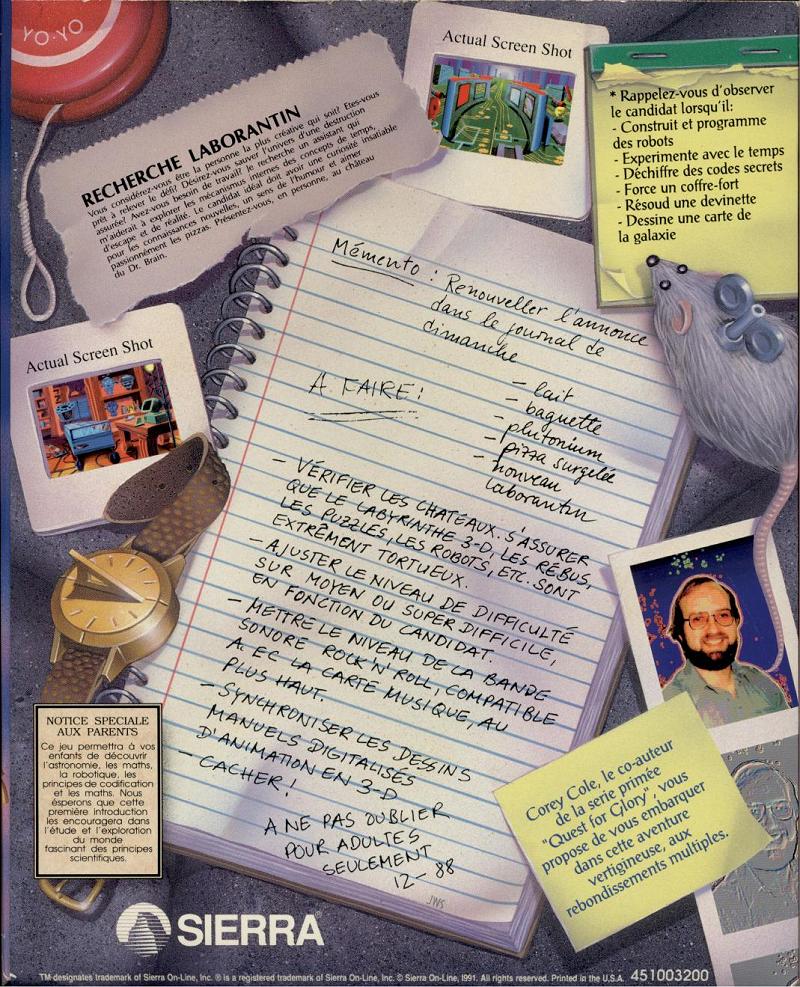 YO-YO
RECHERCHE LABORANTIN
Vous considérez-vous être la personne la plus créative qui soit? Etes-vous
prêt à relever le défi? Désirez-vous sauver l'univers d'une destruction
assurée? Avez-vous besoin de travail? Je recherche un assistant qui
m'aiderait à explorer les mécanismus internes des concepts de temps,
d'escape et de réalité. Le candidat idéal doit avoir une curiosité insatiable
pour les connaissances nouvelles, un sens de l'humour et aimer
passionnément les pizzas. Présentez-vous, en personne, au château
du Dr. Brain.
Actual Screen Shot
* Rappelez-vous d'observer
le candidat lorsqu'il:
- Construit et programme
des robots
- Experimente avec le temps
- Déchiffre des codes secrets
- Force un coffre-fort
- Résoud une devinette
- Dessine une carte de
la galaxie
Actual Screen Shot
Mémento : Renouveller l'annonce
dans le journal de
dimanche
A FAIRE!
- lait
- baguette
- plutonium
- pizza surgelée
- nouveau
laborantin
- VÉRIFIER LES CHATEAUX. S'ASSURER
QUE LE LABYRINTHE 3-D, LES RÉBUS,
LES PUZZLES, LES ROBOTS, ETC. SONT
EXTRÊMENT TORTUEUX.
- AJUSTER LE NIVEAU DE DIFFICULTÉ
SUR MOYEN OU SUPER DIFFICILE,
EN FONCTION DU CANDIDAT.
- METTRE LE NIVEAU DE LA BANDE
SONORE ROCK'N'ROLL, COMPATIBLE
A EC LA CARTE MUSIQUE, AU
PLUS HAUT.
- SYNCHRONISER LES DESSINS
MANUELS DIGITALISÉS
D'ANIMATION EN 3-D
- CACHER!
A NE PAS OUBLIER
POUR ADULTES
SEULEMENT
12-88
JWS
NOTICE SPECIALE
AUX PARENTS
Ce jeu permettra à vos
enfants de découvrir
l'astronomie, les maths,
la robotique, les
principes de codification
et les maths. Nous
ésperons que cette
première introduction
les encouragera dans
l'étude et l'exploration
du monde
fascinant des principes
scientifiques.
Corey Cole, le co-auteur
de la serie primée
"Quest for Glory", vous
propose de vous embarquer
dans cette aventure
vertigineuse, aux
rebondissements multiples.
SIERRA®
TM designates trademark of Sierra On-Line, Inc. ® is a registered trademark of Sierra On-Line, Inc. © Sierra On-Line, 1991. All rights reserved. Printed in the U.S.A. 451003200